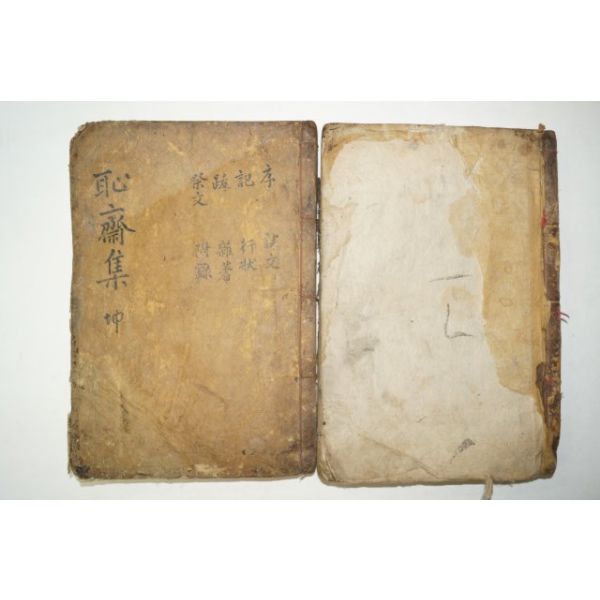 序 文
記 行狀
跋 雜著
祭文 附錄
恥齋集 坤